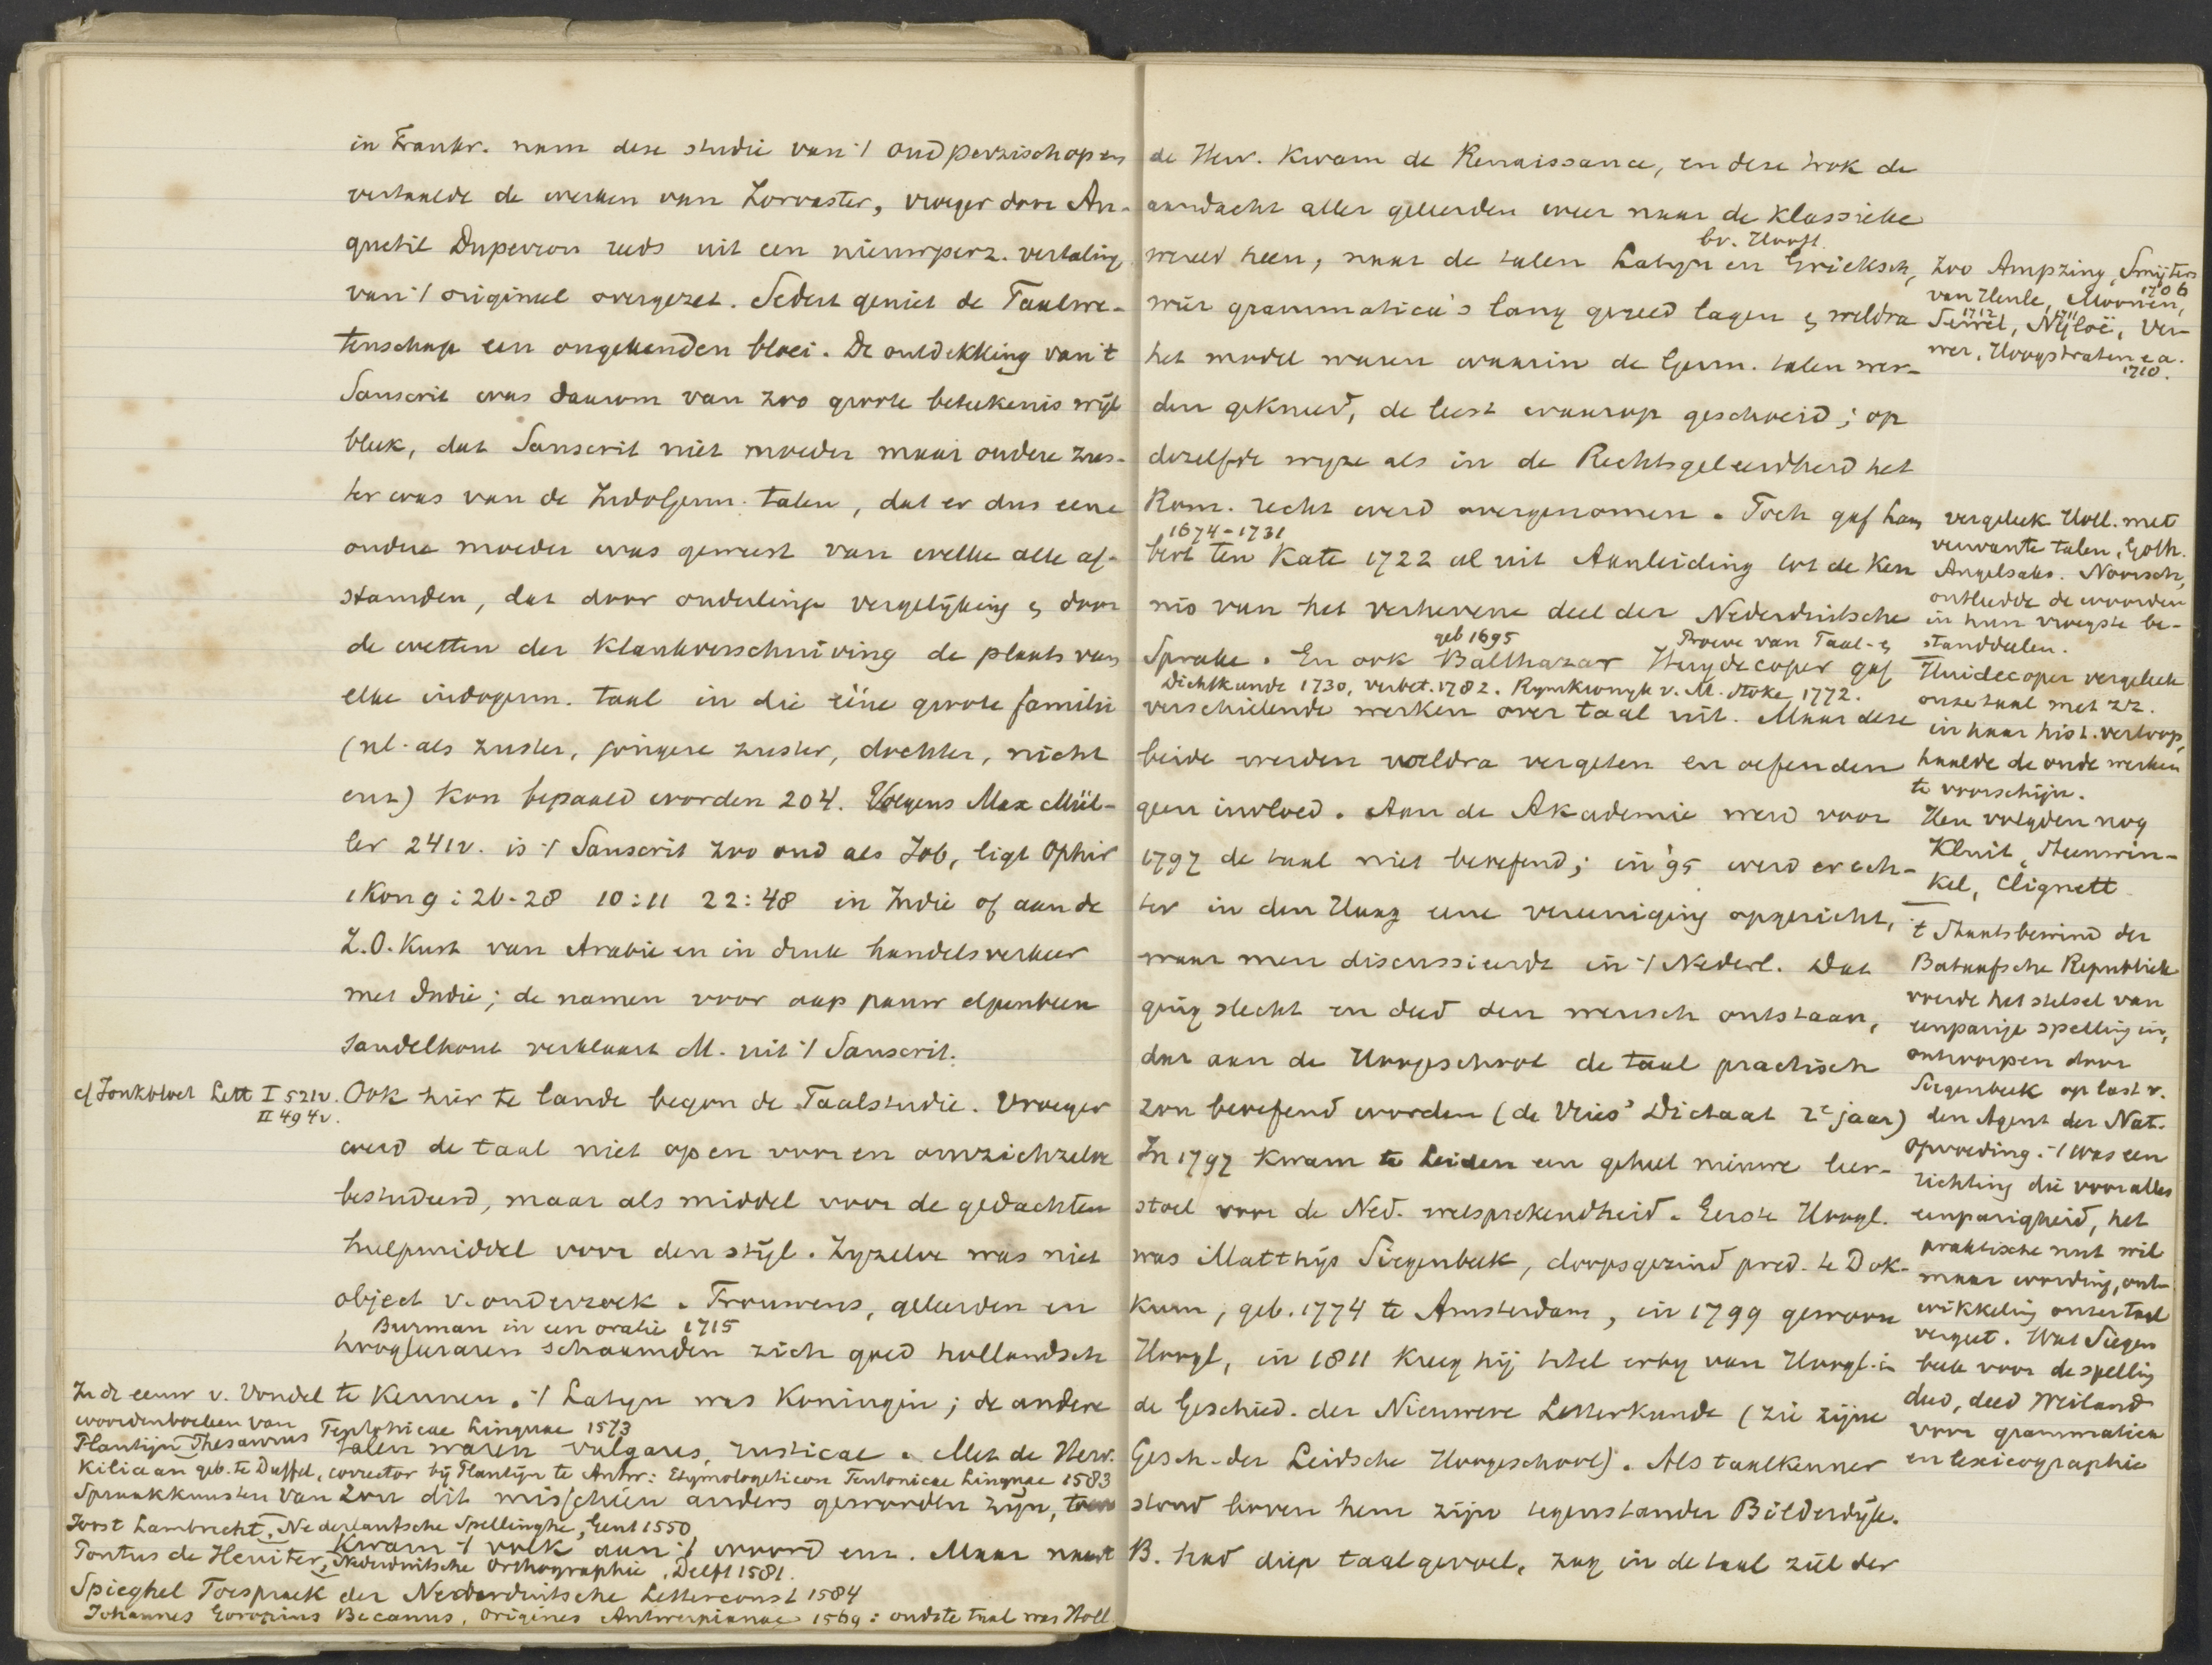 in Frankr. nam deze studie van 't oud perzisch op en
vertaalde de werken van Zoroaster, vroeger door An-
quetil Duperron reeds uit een nieuwperz. vertaling
van 't origineel overgezet. Sedert geniet de Taalwe-
tenschap een ongekenden bloei. De ontdekking van 't
Sanscrit was daarom van zoo groote beteekenis wijl
bleek, dat Sanscrit niet moeder maar oudere zus-
ter was van de IndoGerm. talen, dat er dus eene
oudere moeder was geweest van welke alle af-
stamden, dat door onderlinge vergelijking & door
de wetten der Klankverschuiving de plaats van
elke indogerm. taal in die ééne groote familie
(nl. als zuster, jongere zuster, dochter, nicht
enz) kon bepaald worden 204. Volgens Max Mül-
ler 241v. is 't Sanscrit zoo oud als Job, ligt Ophir
1 Kon 9 : 26-28 10:11 22:48 in Indie of aan de
Z.O. Kust van Arabie en in druk handelsverkeer
met Indie; de namen voor aap pauw elpenbeen
sandelhout verklaart M. uit 't Sanscrit.
cf Jonkbloet Lett I 521v.
II 494v.
Ook hier te lande begon de Taalstudie. Vroeger
werd de taal niet op en voor en om zichzelve
bestudeerd, maar als middel voor de gedachten
hulpmiddel voor den stijl. Zyzelve was niet
object v. onderzoek. Trouwens, geleerden en
Burman in een oratie 1715
hoogleraren schaamden zich goed hollandsch
te kennen. 't Latyn was Koningin; de andere
talen waren vulgares, rusticae. Met de Herv.
Zou dit misschien anders geworden zijn, toen
Kwam 't volk aan 't woord enz. Maar naast
In de eeuw v. Vondel
woordenboeken van
Plantijn Thesaurus Teutonicae Linguae 1573
Kiliaan geb. te Duffel, corrector bij Plantijn te Antw: Etymologeticon Teutonicae Linguae 1583
Spraakkunsten van
Joost Lambrecht, Nederlantsche Spellinghe, Gent 1550
Pontus de Heuiter, Nederduitsche Orthographie, Delft 1581.
Spieghel Toespraek der Nederduitsche Letterconst 1584
Johannes Goropius Becanus, Origines Antwerpianae 1569: oudste taal was Holl
de Herv. kwam de Renaissance, en deze trok de
aandacht aller geleerden weer naar de klassieke
bv. Hooft.
wereld heen, naar de talen Latyn en Grieksch,
wier grammatica's lang gereed lagen & weldra
het model waren waarin de Germ. talen wer-
den gekneed, de leest waarop geschoeid; op
dezelfde wyze als in de Rechtsgeleerdheid het
Rom. recht werd overgenomen. Toch gaf Lam
1674-1731
bert ten Kate 1722 al uit Aanleiding tot de Ken
nis van het verhevene deel der Nederduitsche
geb 1695 Proeve van Taal- &
Sprake. En ook Balthazar Huydecoper gaf
Dichtkunde 1730, verbet. 1782. Rymkronyk v. M. Stoke 1772.
verschillende werken over taal uit. Maar deze
beide werden weldra vergeten en oefenden
geen invloed. Aan de Akademie werd voor
1797 de taal niet beoefend; in '95 werd er ech-
ter in den Haag eene vereeniging opgericht,
waar men discussieerde in 't Nederl. Dat
ging slecht en deed den wensch ontstaan,
dat aan de Hoogeschool de taal practisch
zou beoefend worden (de Vries' Dictaat 2e jaar)
In 1797 kwam te Leiden een geheel nieuwe leer-
stoel voor de Ned. welsprekendheid. Eerste Hoogl.
was Matthijs Siegenbeek, doopsgezind pred. te Dok-
kum, geb. 1774 te Amsterdam, in 1799 gewoon
Hoogl, in 1811 kreeg hij titel erby van Hoogl. in
de Geschied. der Nieuwere Letterkunde (zie zijne
Gesch. der Leidsche Hoogeschool). Als taalkenner
stond boven hem zijn tegenstander Bilderdijk.
B. had diep taalgevoel, zag in de taal ziel der
Zoo Ampzing, Smijters
1706
van Heule, Moonen,
1712 1711
Sewel, Nijloë, Ver-
wer, Hoogstraten e.a.
1710.
vergeleek Holl. met
verwante talen, Goth.
Angelsaks. Noorsch,
ontleedde de woorden
in hun vroegste be-
standdeelen.
Huidecoper vergeleek
onze taal met zz.
in haar hist. verloop,
haalde de oude werken
te voorschijn.
Hen volgden nog
Kluit, Steenwin-
kel, Clignett
't Staatsbewind der
Bataafsche Republiek
voerde het stelsel van
eenparige spelling in,
ontworpen door
Siegenbeek op last v.
den Agent der Nat.
Opvoeding. 't Was een
richting die voor alles
eenparigheid, het
praktische nut wil
maar wording, ont-
wikkeling onzer taal
vergeet. Wat Siegen
beek voor de spelling
deed, deed Weiland
voor grammatica
en lexicographie